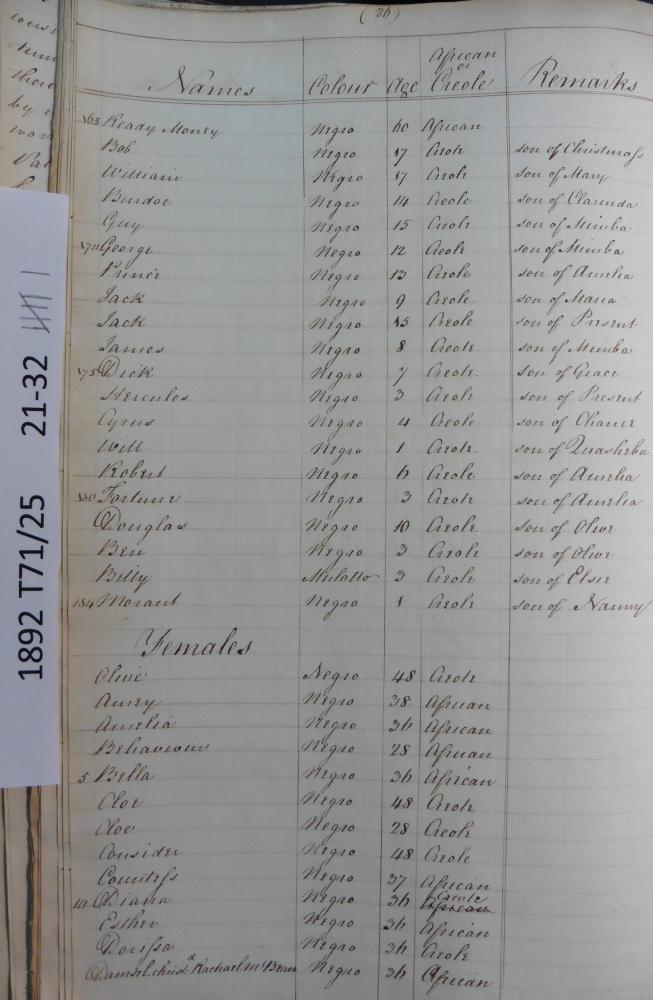 (26)
Names Colour Age African or Creole Remarks
165 Ready Money Negro 60 African
Bob Negro 17 Creole son of Christmass
William Negro 17 Creole son of Mary
Burdoe Negro 14 Creole son of Clarinda
Guy Negro 15 Creole son of Mimba
170 George Negro 12 Creole son of Mimba
Prince Negro 13 Creole son of Amelia
Jack Negro 9 Creole son of Maria
Jack Negro 15 Creole son of Present
James Negro 8 Creole son of Mimba
175 Dick Negro 7 Creole son of Grace
Hercules Negro 3 Creole son of Present
Cyrus Negro 4 Creole son of Chance
Will Negro 1 Creole son of Quasheba
Robert Negro 6 Creole son of Amelia
180 Fortune Negro 3 Creole son of Amelia
Douglas Negro 10 Creole son of Olive
Ben Negro 3 Creole son of Olive
Billy Mulatto 3 Creole son of Elsie
184 Morant Negro 1 Creole son of Nanny
Females
Olive Negro 48 Creole
Negro 38 African
Amelia Negro 36 African
Behaviour Negro 28 African
5 Bella Negro 36 African
Cloe Negro 48 Creole
Cloe Negro 28 Creole
Consider Negro 48 Creole
Countess Negro 37 African
10 Diana Negro 36 Creole African
Esther Negro 36 African
Dorissa Negro 36 Creole
Damsel christ.d Rachael McBean Negro 36 African
1892 T71/25 21-32